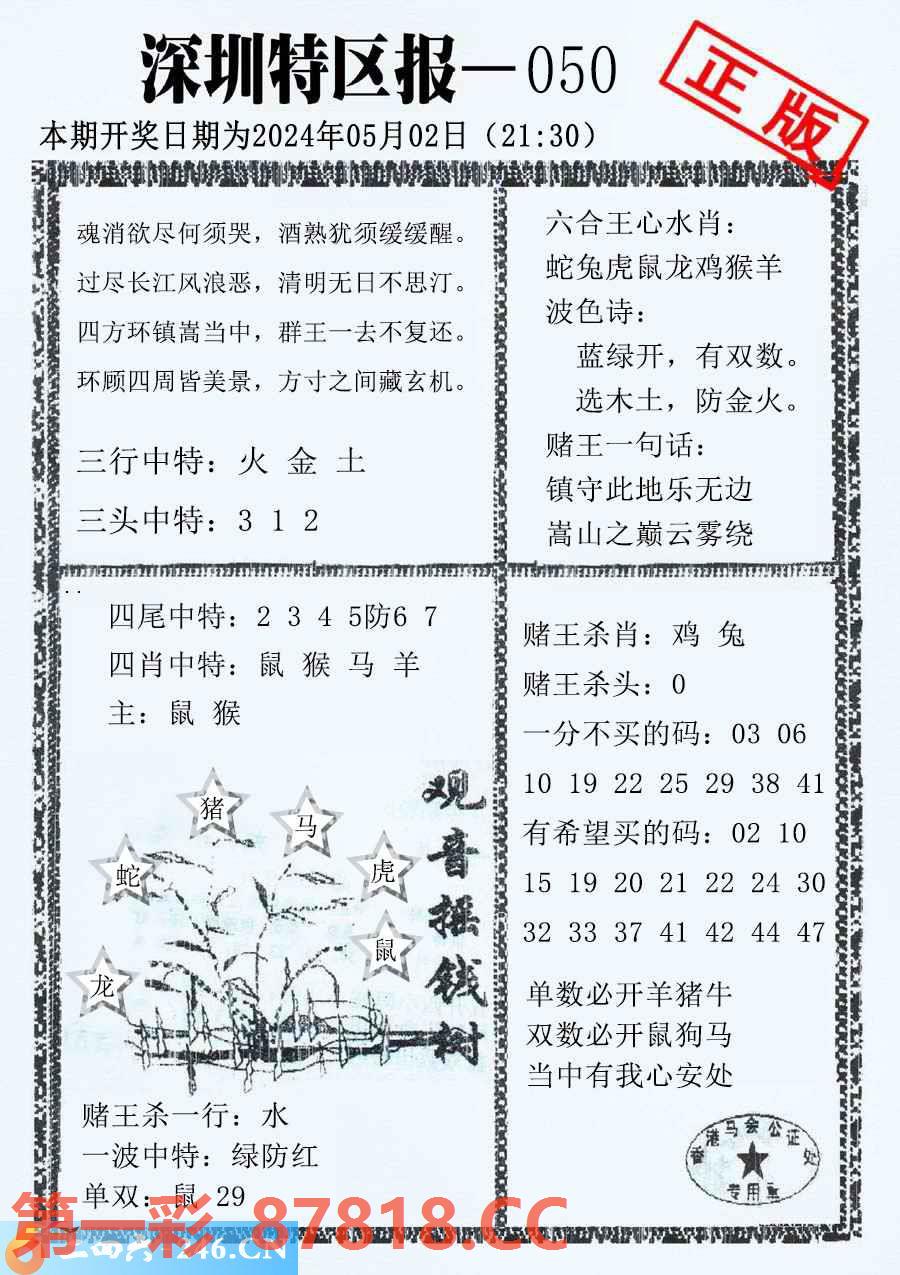 深圳特区报—050
正版
本期开奖日期为2024年05月02日（21:30）
魂消欲尽何须哭，酒熟犹须缓缓醒。
过尽长江风浪恶，清明无日不思汀。
四方环镇嵩当中，群王一去不复还。
环顾四周皆美景，方寸之间藏玄机。
三行中特：火 金 土
三头中特：3 1 2
六合王心水肖：
蛇兔虎鼠龙鸡猴羊
波色诗：
蓝绿开，有双数。
选木土，防金火。
赌王一句话：
镇守此地乐无边
嵩山之巅云雾绕
四尾中特：2 3 4 5防6 7
四肖中特：鼠 猴 马 羊
主：鼠 猴
猪
马
蛇
虎
鼠
龙
观音摇钱树
赌王杀一行：水
一波中特：绿防红
单双：鼠 29
赌王杀肖：鸡 兔
赌王杀头：0
一分不买的码：03 06
10 19 22 25 29 38 41
有希望买的码：02 10
15 19 20 21 22 24 30
32 33 37 41 42 44 47
单数必开羊猪牛
双数必开鼠狗马
当中有我心安处
香港马会公证处
专用章
第一彩 87818.CC
246.CN